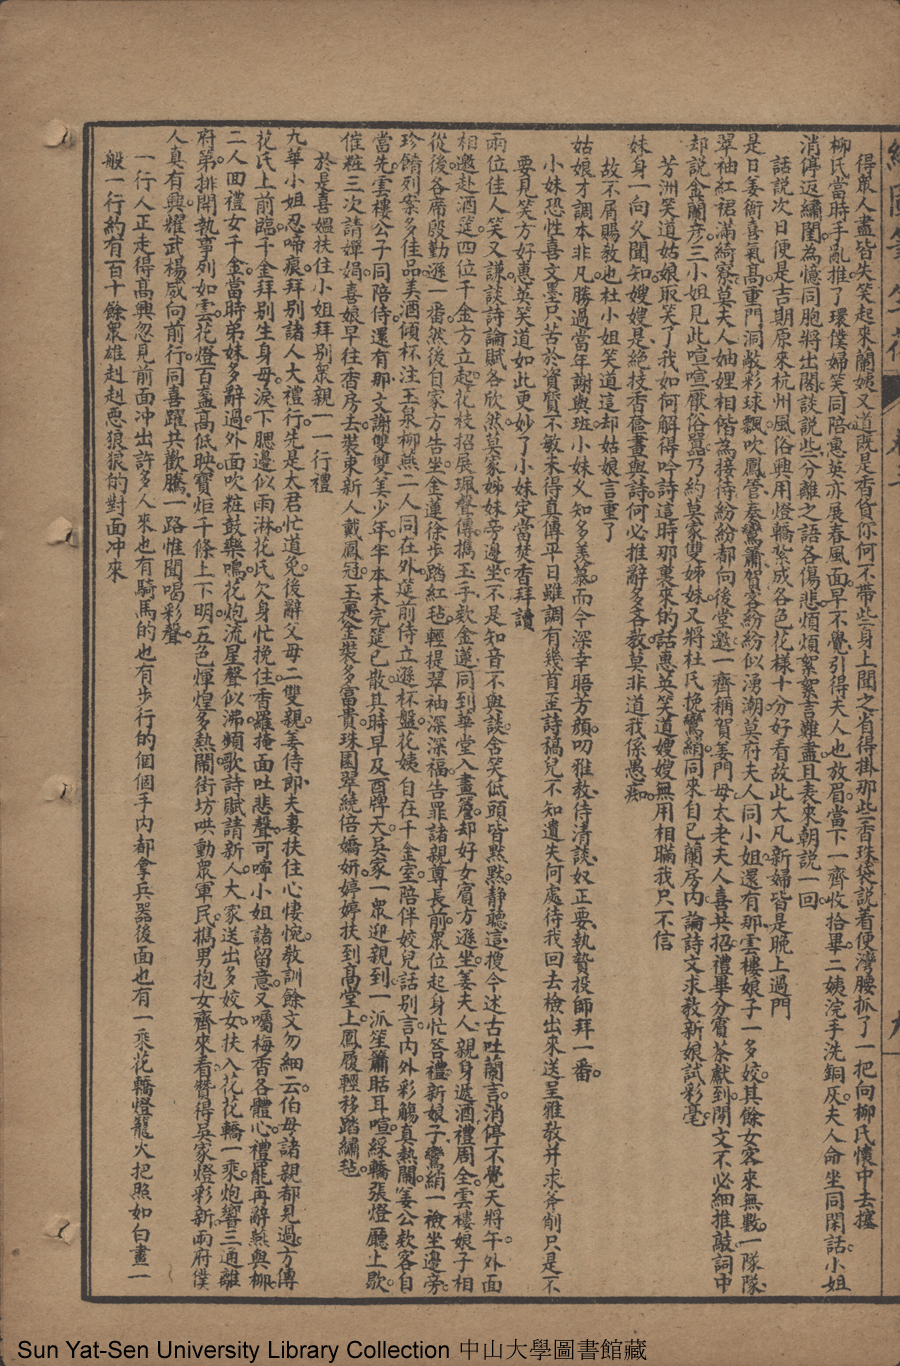 得眾人盡皆失笑起來蘭姨又道既是香貨你何不帶些身上聞之省得掛那些香珠袋說着便灣腰抓了一把向柳氏懷中去搖
柳氏當時手亂推了環僕婦笑同陪惠英亦展春風面早不覺引得夫人也放眉當下一齊收拾畢二姨浣手洗銅灰夫人命坐同閑話小姐
消停返繡閨為憶同胞將出閣談說些分離之語各傷悲煩煩絮絮言難盡且表來朝說一回
話說次日便是吉期原來杭州風俗興用燈轎紮成各色花樣十分好看故此大凡新婦皆是晚上過門
是日姜衙喜氣高重門洞敞彩球飄吹鳳管奏鸞簫賀客紛紛似湧潮莫府夫人同小姐還有那雲樓娘子一多姣其餘女客來無數一隊隊
翠袖紅裙滿綺寮莫夫人妯娌相偕為接待紛紛都向後堂邀一齊稱賀姜門母太老夫人喜共招禮畢分賓茶獻到閑文不必細推敲詞中
却說金蘭彥三小姐見此喧喧厭俗囂乃約莫家雙姊妹又將杜氏挽鸞綃同來自已蘭房內論詩文求教新娘試彩毫
芳洲笑道姑娘取笑了我如何解得吟詩這時那裏來的話惠英笑道嫂嫂無用相瞞我只不信
妹身一向父聞知嫂嫂是絕技香奩畫與詩何必推辭多吝教莫非道我係愚痴
故不屑賜教也杜小姐笑道這却姑娘言重了
姑娘才調本非凡勝過當年謝與班小妹久知多羨慕而今深幸晤芳顏叨雅教待清談奴正要執贄投師拜一番
小妹恐性喜文墨只苦於資質不敏未得真傳平日雖調有幾首歪詩稿兒不知遺失何處待我回去檢出來送呈雅教并求斧削只是不
要見笑方好惠英笑道如此更妙了小妹定當焚香拜讀
兩位佳人笑又謙談詩論賦各欣然莫家姊妹旁邊坐不是知音不與談含笑低頭皆默默靜聽這搜今述古吐蘭言消停不覺天將午外面
相邀赴酒筵四位千金方立起花枝招展珮聲傳撝玉手欸金蓮同到華堂入畫簷却好女賓方遜坐姜夫人親身遞酒禮周全雲樓娘子相
從後各席殷勤遜一番然後自家方告坐金蓮徐步踏紅毡輕提翠袖深深福告罪諸親尊長前眾位起身忙荅禮新娘子鸞綃一檢坐邊旁
珍饈列案多佳品美酒傾杯注玉泉柳燕二人同在外筵前侍立遞杯盤花姨自在千金室陪伴姣兒話别言內外彩觴真熱鬧姜公欸客自
當先雲樓公子同陪侍還有那文謝雙雙美少年午本未完筵已散其時早及酉牌天吳家一眾迎親到一派笙簫聒耳喧綵轎張燈廳上歇
催粧三次請嬋娟喜娘早往香房去裝束新人戴鳳冠玉裹金裝多富貴珠圍翠繞倍嬌妍婷婷扶到高堂上鳳履輕移踏繡毡
於是喜媼扶住小姐拜别眾親一一行禮
九華小姐忍啼痕拜别諸人大禮行先是太君忙道免後辭父母二雙親姜侍郎夫妻扶住心悽惋教訓餘文勿細云伯母諸親都見過方傳
花氏上前臨千金拜别生身母淚下腮邊似雨淋花氏欠身忙挽住香羅掩面吐悲聲可憐小姐諸留意又囑梅香各體心禮罷再辭燕與柳
二人回禮女千金當時弟妹多辭過外面吹粧鼓樂鳴花炮流星聲似沸頻歌詩賦請新人大家送出多姣女扶入花花轎一乘炮響三通離
府第排開執事列如雲花燈百盞高低映寶炬千條上下明五色煇煌多熱鬧街坊哄動眾軍民撝男抱女齊來看贊得吳家燈彩新兩府僕
人真有興耀武楊威向前行同喜躍共歡騰一路惟聞喝彩聲
一行人正走得高興忽見前面冲出許多人來也有騎馬的也有步行的個個手內都拿兵器後面也有一乘花轎燈籠火把照如白晝一
般一行約有百十餘眾雄赳赳惡狼狼的對面冲來
Sun Yat-Sen University Library Collection 中山大學圖書館藏